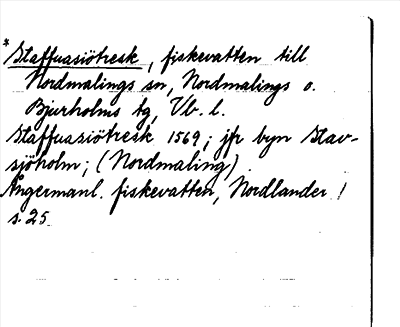 * Staffuasiötresk, fiskevatten till
Nordmalings sn, Nordmalings o.
Bjurholms tg, Vb. l.
Staffuasiötresk 1569; jfr byn Stav-
sjöholm; (Nordmaling)
Ångermanl. fiskevatten, Nordlander /
s. 25